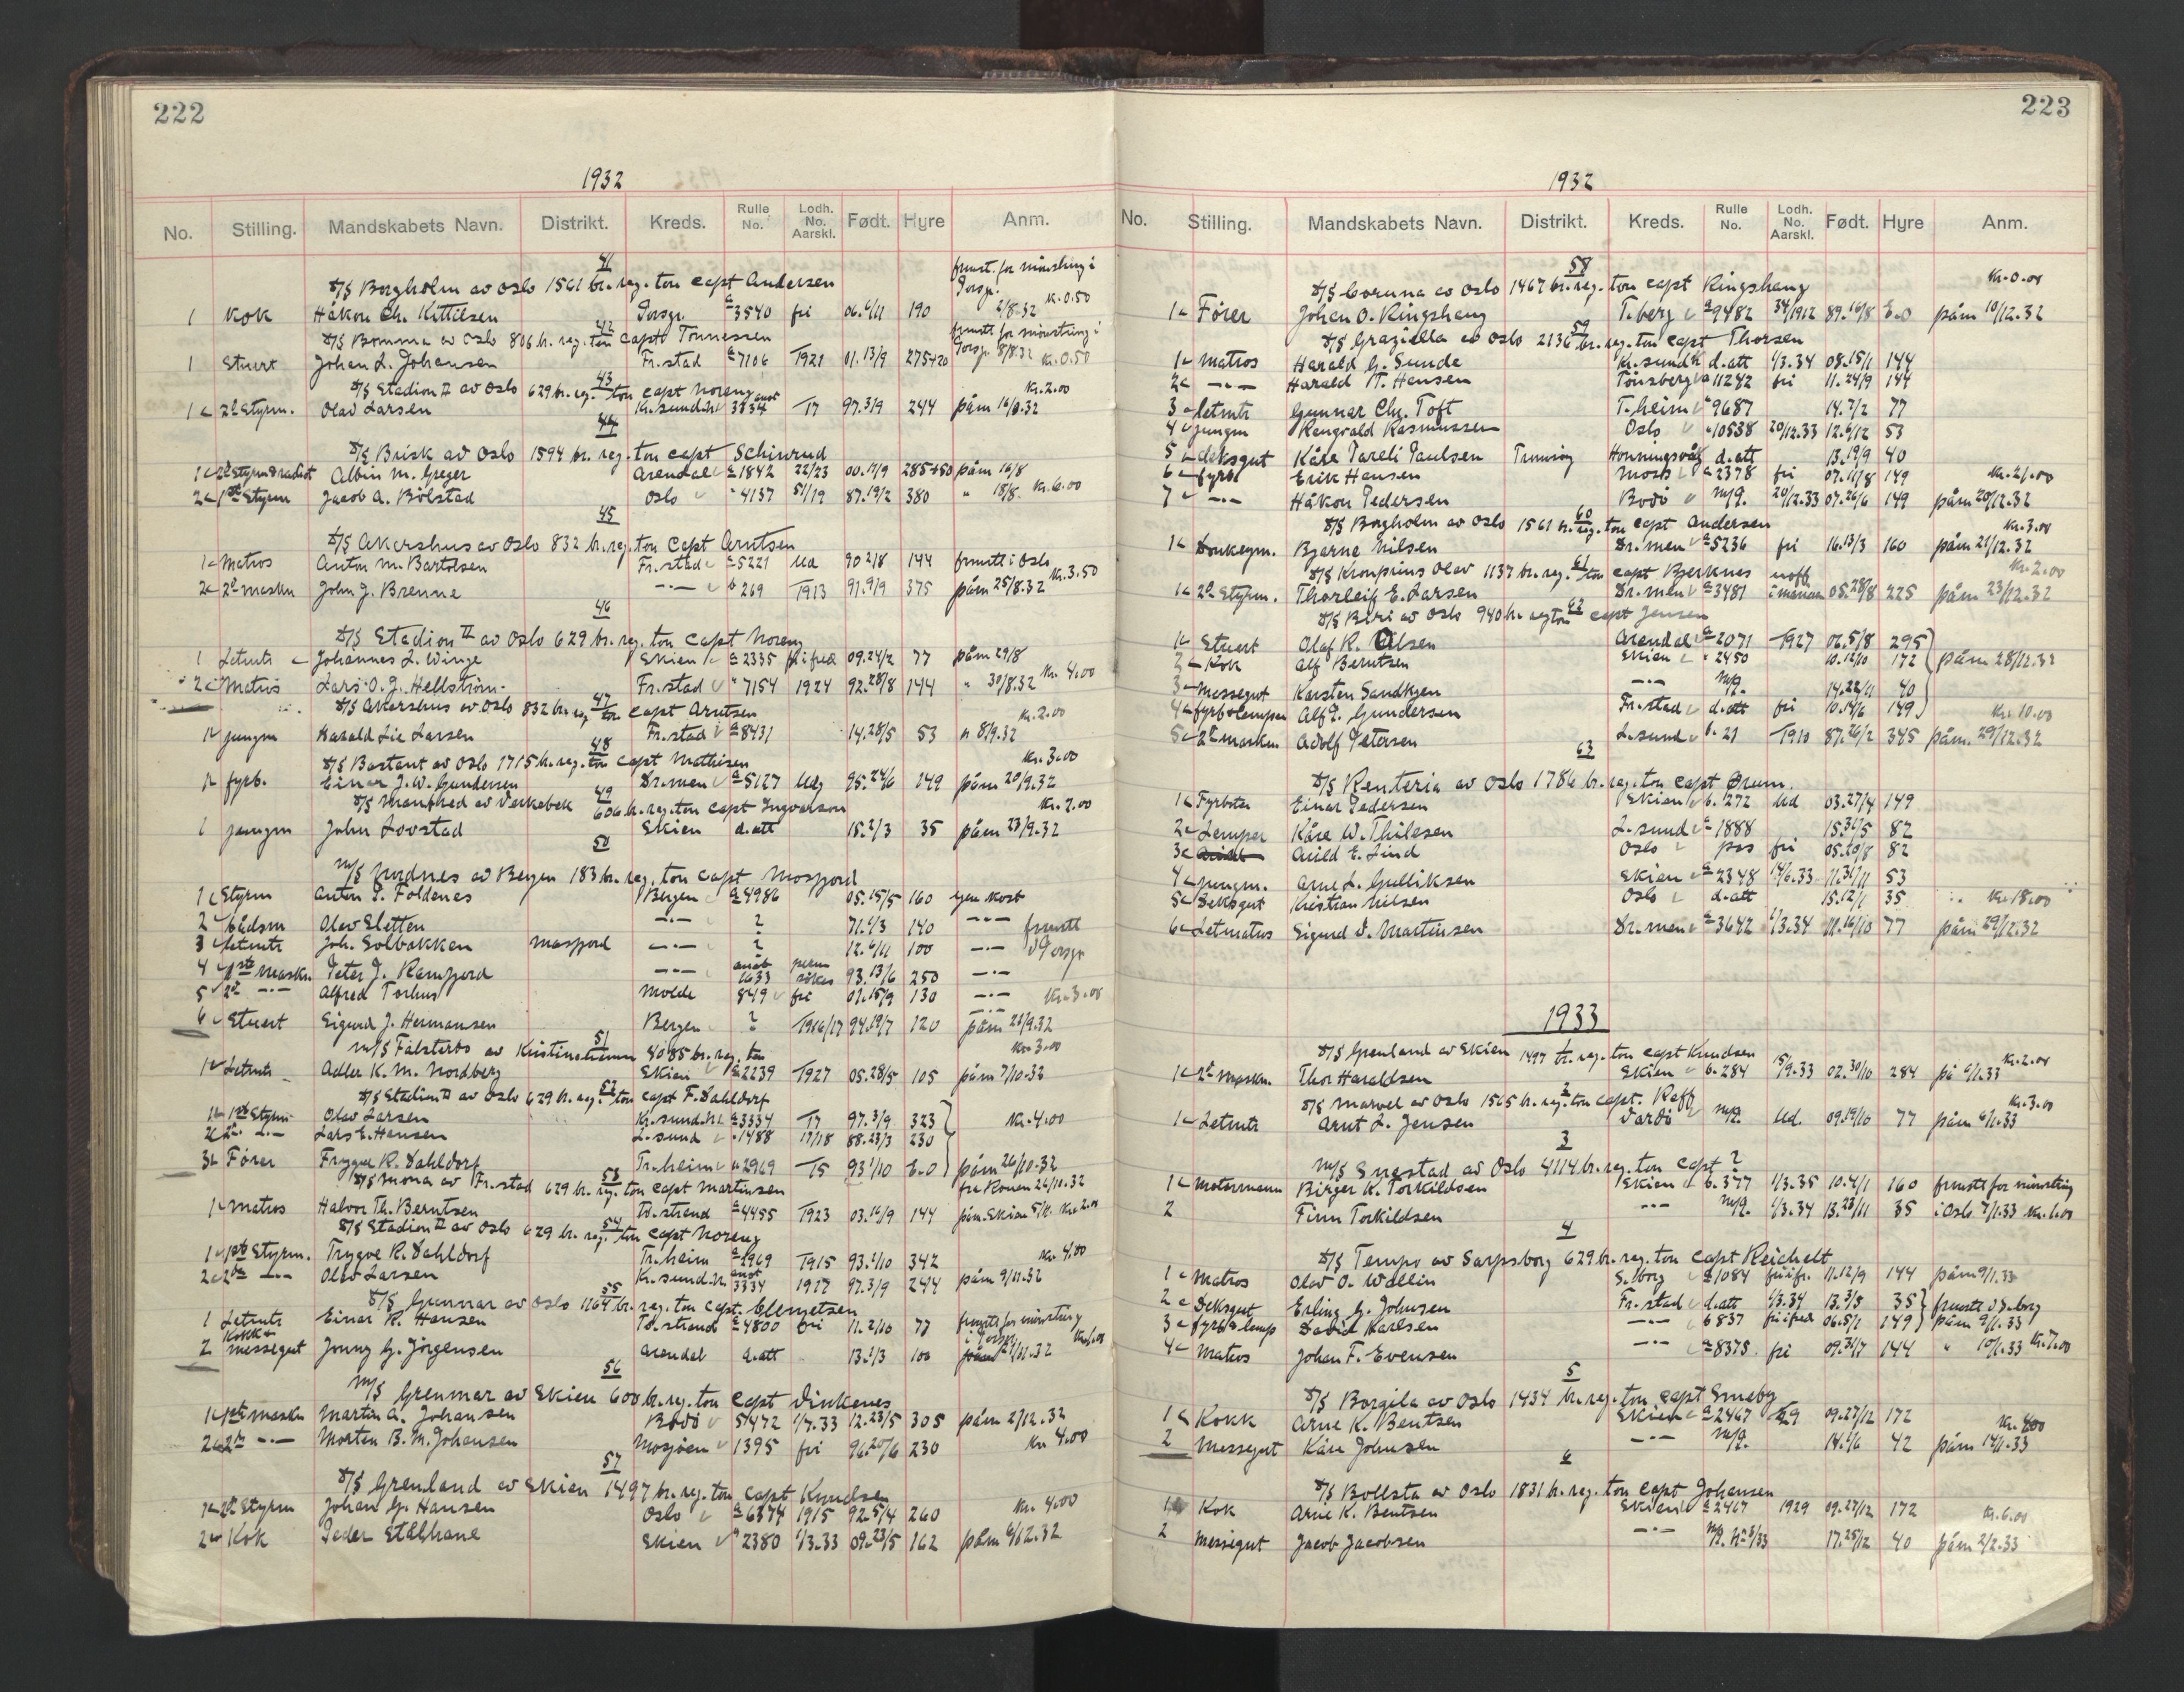 222
1932
No. Stilling. Mandskabets Navn. Distrikt. Kreds. Rulle No. Lodh. No. Aarskl. Født. Hyre Anm.
41
D/S Borgholm av Oslo 1561 br. reg. ton capt Andersen frmst. for mönstring i Porsgr.
1 Kok Håkon Ch. Kittilsen Porsgr. a 3540 fri 06.6/11 190 2/8.32 Kr. 0.50
42
D/S Bomma av Oslo 806 br. reg. ton capt Tönnessen frmst. for mönstring i
1 Stuert Johan L. Johansen Fr.stad a 7106 T1921 01.13/9 275+20 Porsgr. 8/8.32 Kr. 0.50
43
D/S Stadion II av Oslo 629 br. reg. ton capt Noreng Kr. 2.00
1 2d Styrm. Olav Larsen Kr.sund.N. 3334 T7 97.3/9 244 påm 16/8.32
44
D/S Brisk av Oslo 1594 br. reg. ton capt Schinrud
1 2d Styrm & radiot Albin M. Greger Arendal a 1842 22/23 00.17/9 285+50 påm 16/8
2 1ste Styrm Jacob A. Bölstad Oslo " 4137 51/19 87.19/2 380 " 18/8. Kr. 6.00
45
D/S Akershus av Oslo 832 br. reg. ton Capt Arntsen
1 Matros Anton M. Bartolsen Fr.stad a 5221 Ud 90 2/8 144 frmstt i Oslo
2 2d maskn John J. Brenne —·— b 269 T1913 91.9/9 375 påm 25/8.32 Kr. 3.50
46
D/S Stadion II av Oslo 629 br. reg. ton Capt Noreng
1 Letmtr Johannes L. Winge Skien a 2335 fri fred 09.24/2 77 påm 29/8
2 Matros Lars O. J. Hellström Fr.stad " 7154 1924 92.28/8 144 " 30/8.32 Kr. 4.00
47
D/S Akershus av Oslo 832 br. reg. ton capt Arntsen Kr. 2.00
1 jungm Harald Lie Larsen Fr.stad a 8431 14.28/5 53 " 8/9.32
48
D/S Bastant av Oslo 1715 br. reg. ton capt Mathisen Kr. 3.00
1 fyrb. Einar J. W. Gundersen Dr.men a 5127 Udg 95.24/6 149 påm 20/9.32
49
D/S Manfred av Valkebek 606 br. reg. ton capt Ingvarson Kr. 2.00
1 jungm John Lovstad Skien d.att 15.2/3 35 påm 23/9.32
50
M/S Nordnes av Bergen 183 br. reg. ton capt Mosfjord
1 Styrm Anton S. Foldenes Bergen a 4986 05.15/5 160 egen kost
2 bådsm Olav Sletten —·— ? 71.6/3 140 —·— frmstt
3 letmtr Joh. Solbakken Masfjord —·— ? 12.6/11 100 —·— i Porsgr
4 1ste maskn Peter J. Ramfjord —·— 1633 93.13/6 250 —·—
5 2d —·— Alfred Torhus Molde 849 fri 07.15/9 130 —·— Kr. 3.00
6 Stuert Sigurd J. Hermansen Bergen ? T1916/17 94.19/7 120 påm 26/9.32
51
M/S Falsterbo av Kristinehamn 4085 br. reg. ton Kr. 3.00
1 Letmtr Adler K. M. Nordberg Skien a 2239 T1927 05.28/5 105 påm 7/10.32
52
D/S Stadion II av Oslo 629 br. reg. ton capt F. Dahldorf
1 1st Styrm Olav Larsen Kr.sund.N. a 3334 T7 97.3/9 323 Kr. 4.00
2 2d —·— Lars E. Hansen L.sund " 1488 17/18 88.23/3 230
3 Förer Trygve R. Dahldorf Tr.heim " 2969 T5 93 1/10 E-O påm 26/10.32
53
D/S Mona av Fr.stad 629 br. reg. ton capt Martinsen fra Rouen 26/10.32
1 Matros Halvor Th. Berntsen Td.strand a 4455 T1923 03.16/9 144 påm. Skien 5/11. Kr. 2.00
54
D/S Stadion II av Oslo 629 br. reg. ton Capt Noreng
1 1ste Styrm. Trygve R. Dahldorf Tr.heim a 2969 T1915 93.1/10 342 Kr. 4.00
2 2den —·— Olav Larsen Kr.sund.N. 3334 1917 97.3/9 244 påm 9/11.32
55
D/S Gunnar av Oslo 1264 br. reg. ton capt. Clemetsen
1 Letmtr Einar R. Hansen Td.strand a 4800 fri 11.2/10 77 frmstt for mönstring
2 Kokk & messegut Jonny G. Jörgensen Arendal d.att 13.1/3 100 i Porsgr. 21/11.32 Kr. 1.00
56
M/S Grenmar av Skien 600 br. reg. ton Capt Vinkenes
1 1ste maskn Martin A. Johansen Bodö 5/472 1/7.33 12.23/5 305 påm 2/12.32
2 2den —·— Morten B. M. Johansen Mosjöen 1395 fri 96.20/6 230 Kr. 4.00
57
D/S Grenland av Skien 1497 br. reg. ton Capt Knudsen
1 2d Styrm Johan G. Hansen Oslo a 6374 1915 92.5/4 260 Kr. 4.00
2 Kok Peder Stålhane Skien a 2380 1/3.33 09.23/5 162 påm 6/12.32
223
1932
No. Stilling. Mandskabets Navn. Distrikt. Kreds. Rulle No. Lodh. No. Aarskl. Født. Hyre Anm.
58
D/S Coruna av Oslo 1467 br. reg. ton capt Ringshaug Kr. 0.00
1 Förer Johan O. Ringshaug T.berg a 9482 34/1912 89.16/8 E.O påm 10/12.32
59
D/S Graziella av Oslo 2136 br. reg. ton capt Thorsen
1 Matros Harald G. Sunde Kr.sund N d.att 1/3.34 08.15/1 144
2 —·— Harald H. Hansen Tönsberg a 11242 fri 11.24/9 144
3 Letmtr Gunnar Chr. Toft T.heim " 9687 14.2/2 77
4 jungm Rangvald Rasmussen Oslo " 10538 20/12.33 12.6/12 53
5 deksgut Kåre Pareli Paulsen Tromsöy Honningsvåg d.att 13.19/9 40
6 fyrb Erik Hansen Moss a 2378 fri 07.11/8 149 Kr. 21.00
7 —·— Håkon Pedersen Bodö m/p. 20/12.33 07.26/6 149 påm 20/12.32
60
D/S Borgholm av Oslo 1561 br. reg. ton capt Andersen Kr. 3.00
1 Donkeym. Bjarne Nilsen Dr.men a 5236 fri 16.13/3 160 påm 21/12.32
61
D/S Kronprins Olav 1137 br. reg. ton capt Bjerknes Kr. 2.00
1 2d Styrm. Thorleif E. Larsen Dr.men a 3481 i marinen 05.28/8 225 påm 23/12.32
62
D/S Biri av Oslo 940 br. reg ton capt Jensen
1 Stuert Olaf R. Olsen Arendal a 2071 T1927 06.5/8 295
2 Kok Alf Berntsen Skien " 2450 10.12/10 172 påm 28/12.32
3 Messegut Karsten Sandkjen —·— m/p. 14.22/11 40
4 fyrb & lemper Alf J. Gundersen Fr.stad d.att fri 10.14/6 149 Kr. 10.00
5 2d maskn Adolf Petersen L.sund b. 21 T1910 87.26/2 345 påm. 29/12.32
63
D/S Renteria av Oslo 1786 br. reg. ton capt Drum
1 Fyrböter Einar Pedersen Skien b. 272 Ud 03.27/4 149
2 Lemper Kåre W. Thilesen L.sund a 1888 15.31/5 82
3 Arild E. Lind Oslo pas fri 05.20/8 82
4 jungm. Arne L. Gulliksen Skien a 2348 14/6.33 11.31/11 53
5 Deksgut Kristian Nilsen Oslo d.att 15.12/1 35 Kr. 18.00
6 Letmatros Sigurd D. Martinsen Dr.men a 3642 1/3.34 11.16/10 77 påm 29/12.32
1933
1
D/S Grenland av Skien 1497 br. reg. ton capt Knudsen Kr. 2.00
1 2d Maskn. Thor Haraldsen Skien b. 284 15/9.33 02.30/10 284 på 6/1.33
2
D/S Marvel av Oslo 1565 br. reg. ton capt. Raff Kr. 3.00
1 Letmtr Arnt L. Jensen Vardö m/p. Ud. 09.19/10 77 påm 6/1.33
3
M/S Snestad av Oslo 4114 br. reg. ton Capt ?
1 Motormann Birger K. Torkildsen Skien b. 377 1/3.35 10.4/1 160 frmstt for mönstring
2 Finn Torkildsen —·— m/p. 1/3.34 13.23/11 35 i Oslo 7/1.33 Kr. 1.00
4
D/S Tempo av Sarpsborg 629 br. reg. ton capt Reichelt
1 Matros Olav O. Wallin S.borg a 1084 fri i fr. 11.12/9 144 påm 9/1.33
2 Deksgut Erling G. Johnsen Fr.stad d.att 1/3.34 13.3/5 35 frmstt i S.borg
3 fyrb & lemp David Karlsen —·— b 837 fri i fred 06.5/1 149 påm 9/1.33
4 Matros Johan F. Evensen —·— a 8375 fri 09.31/7 144 " 10/1.33 Kr. 7.00
5
D/S Borgila av Oslo 1434 br. reg. ton capt Smeby
1 Kokk Arne K. Bentsen Skien a 2467 29 09.27/12 172 Kr. 4.00
2 Messegut Kåre Johnsen —·— m/p. 14.1/6 42 påm 14/1.33
6
D/S Bollsta av Oslo 1831 br. reg. ton capt Johansen
1 Kok Arne K. Bentsen Skien a 2467 1929 09.27/12 172 Kr. 6.00
2 Messegut Jacob Jacobsen —·— 17.25/12 40 påm 2/2.33